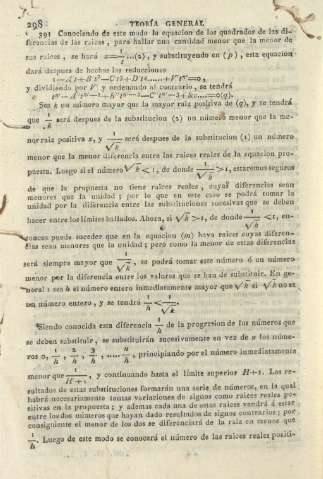 298 TEORÍA GENERAL
391 Conociendo de este modo la equacion de los quadrados de las di-
ferencias de las raices, para hallar una cantidad menor que la menor de
sus raices, se hará ...(2), y substituyendo en (p), esta equacion
dará despues de hechas las reducciones
y dividiendo por V y ordenando al contrario, se tendrá
Sea k un número mayor que la mayor raiz positiva de (q), y se tendrá
que 1/k será despues de la substitucion (2) un número menor que la me-
nor raiz positiva x, y 1/√k será despues de la substitucion (1) un número
menor que la menor diferencia entre las raices reales de la equacion pro-
puesta. Luego si el número √k < 1, de donde 1/√k > 1, estaremos seguros
de que la propuesta no tiene raices reales, cuyas diferencias sean
menores que la unidad; por lo que en este caso se podrá tomar la
unidad por la diferencia entre las substituciones sucesivas que se deben
hacer entre los límites hallados. Ahora, si √k > 1, de donde 1/√k < 1, en-
tonces puede suceder que en la equacion (m) haya raices cuyas diferen-
cias sean menores que la unidad; pero como la menor de estas diferencias
será siempre mayor que 1/√k, se podrá tomar este número ó un número
menor por la diferencia entre los valores que se han de substituir. En ge-
neral: sea h el número entero inmediatamente mayor que √k si √k no es
un número entero, y se tendrá 1/h < 1/√k.
Siendo conocida esta diferencia 1/h de la progresion de los números que
se deben substituir, se substituirán sucesivamente en vez de x los núme-
ros 0, 1/h, 2/h, 3/h, ..... principiando por el número inmediatamente
menor que 1/H+1, y continuando hasta el límite superior H+1. Los re-
sultados de estas substituciones formarán una serie de números, en la qual
habrá necesariamente tantas variaciones de signos como raices reales po-
sitivas en la propuesta; y ademas cada una de estas raices vendrá á estar
entre los dos números que hayan dado resultados de signos contrarios; por
consiguiente el menor de los dos se diferenciará de la raiz en menos que
1/h. Luego de este modo se conocerá el número de las raices reales positi-